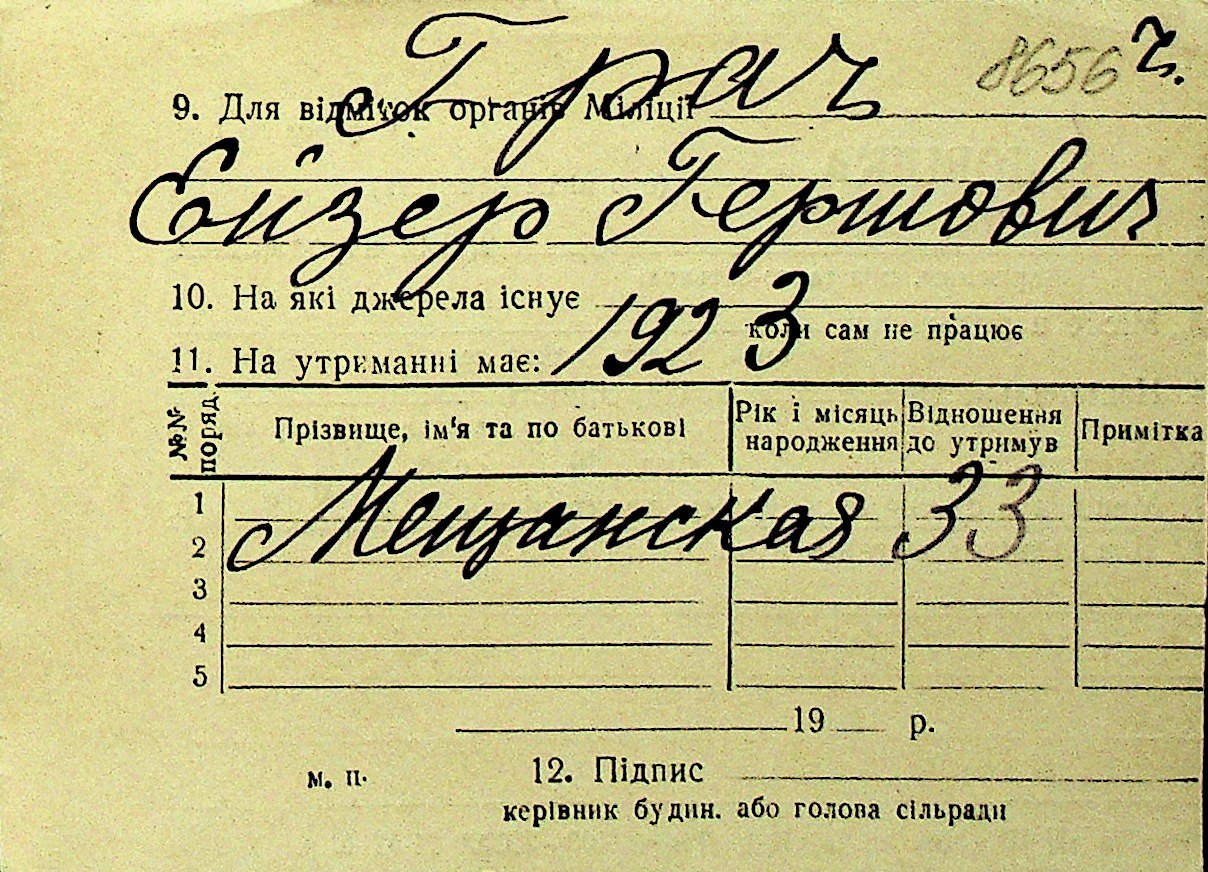 Грач 8656 ч.
9. Для відміток органів Міліції
Ейзер Гершович
10. На які джерела існує
1923
коли сам не працює
11. На утриманні має:
№№ поряд.
Прізвище, ім'я та по батькові
Рік і місяць народження
Відношення до утримув
Примітка
1
Мещанская 33
2
3
4
5
19 р.
м. п.
12. Підпис
керівник будин. або голова сільради